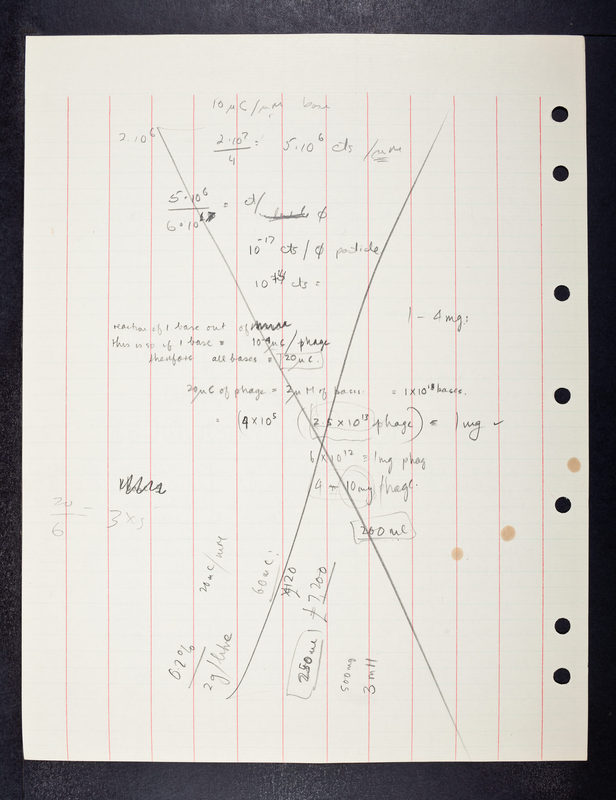 10 μC / μM base
2.10⁶
2.10⁷ / 4 = 5.10⁶ cts / μM
5.10⁶ / 6.10¹⁷ = ct / φ
10⁻¹⁷ cts / φ particle
cts =
1 – 4 mg:
reaction of 1 base out of
this is so if 1 base = μC / phage
therefore all bases = 20 μC.
20 μC of phage = 2 μM of bases = 1 × 10¹⁸ bases.
= (4 × 10⁵ (2.5 × 10¹³ phage) = 1 mg
6 × 10¹² = 1 mg phag
4 – 10 mg phage.
20 / 6 = 3 × 5
200 ml
20 μC / μM
60 μC.
120
7,200
62%
2g / litre
250 ml
500 mg
3 mH